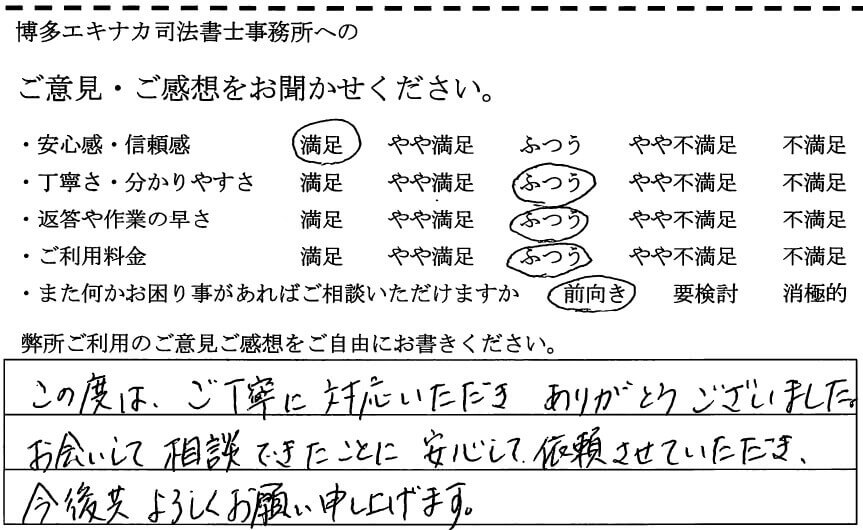 博多エキナカ司法書士事務所への
ご意見・ご感想をお聞かせください。
・安心感・信頼感 満足 やや満足 ふつう やや不満足 不満足
・丁寧さ・分かりやすさ 満足 やや満足 ふつう やや不満足 不満足
・返答や作業の早さ 満足 やや満足 ふつう やや不満足 不満足
・ご利用料金 満足 やや満足 ふつう やや不満足 不満足
・また何かお困り事があればご相談いただけますか 前向き 要検討 消極的
弊所ご利用のご意見ご感想をご自由にお書きください。
この度は、ご丁寧に対応いただき ありがとうございました。
お会いして相談できたことに安心して、依頼させていただき、
今後共よろしくお願い申し上げます。